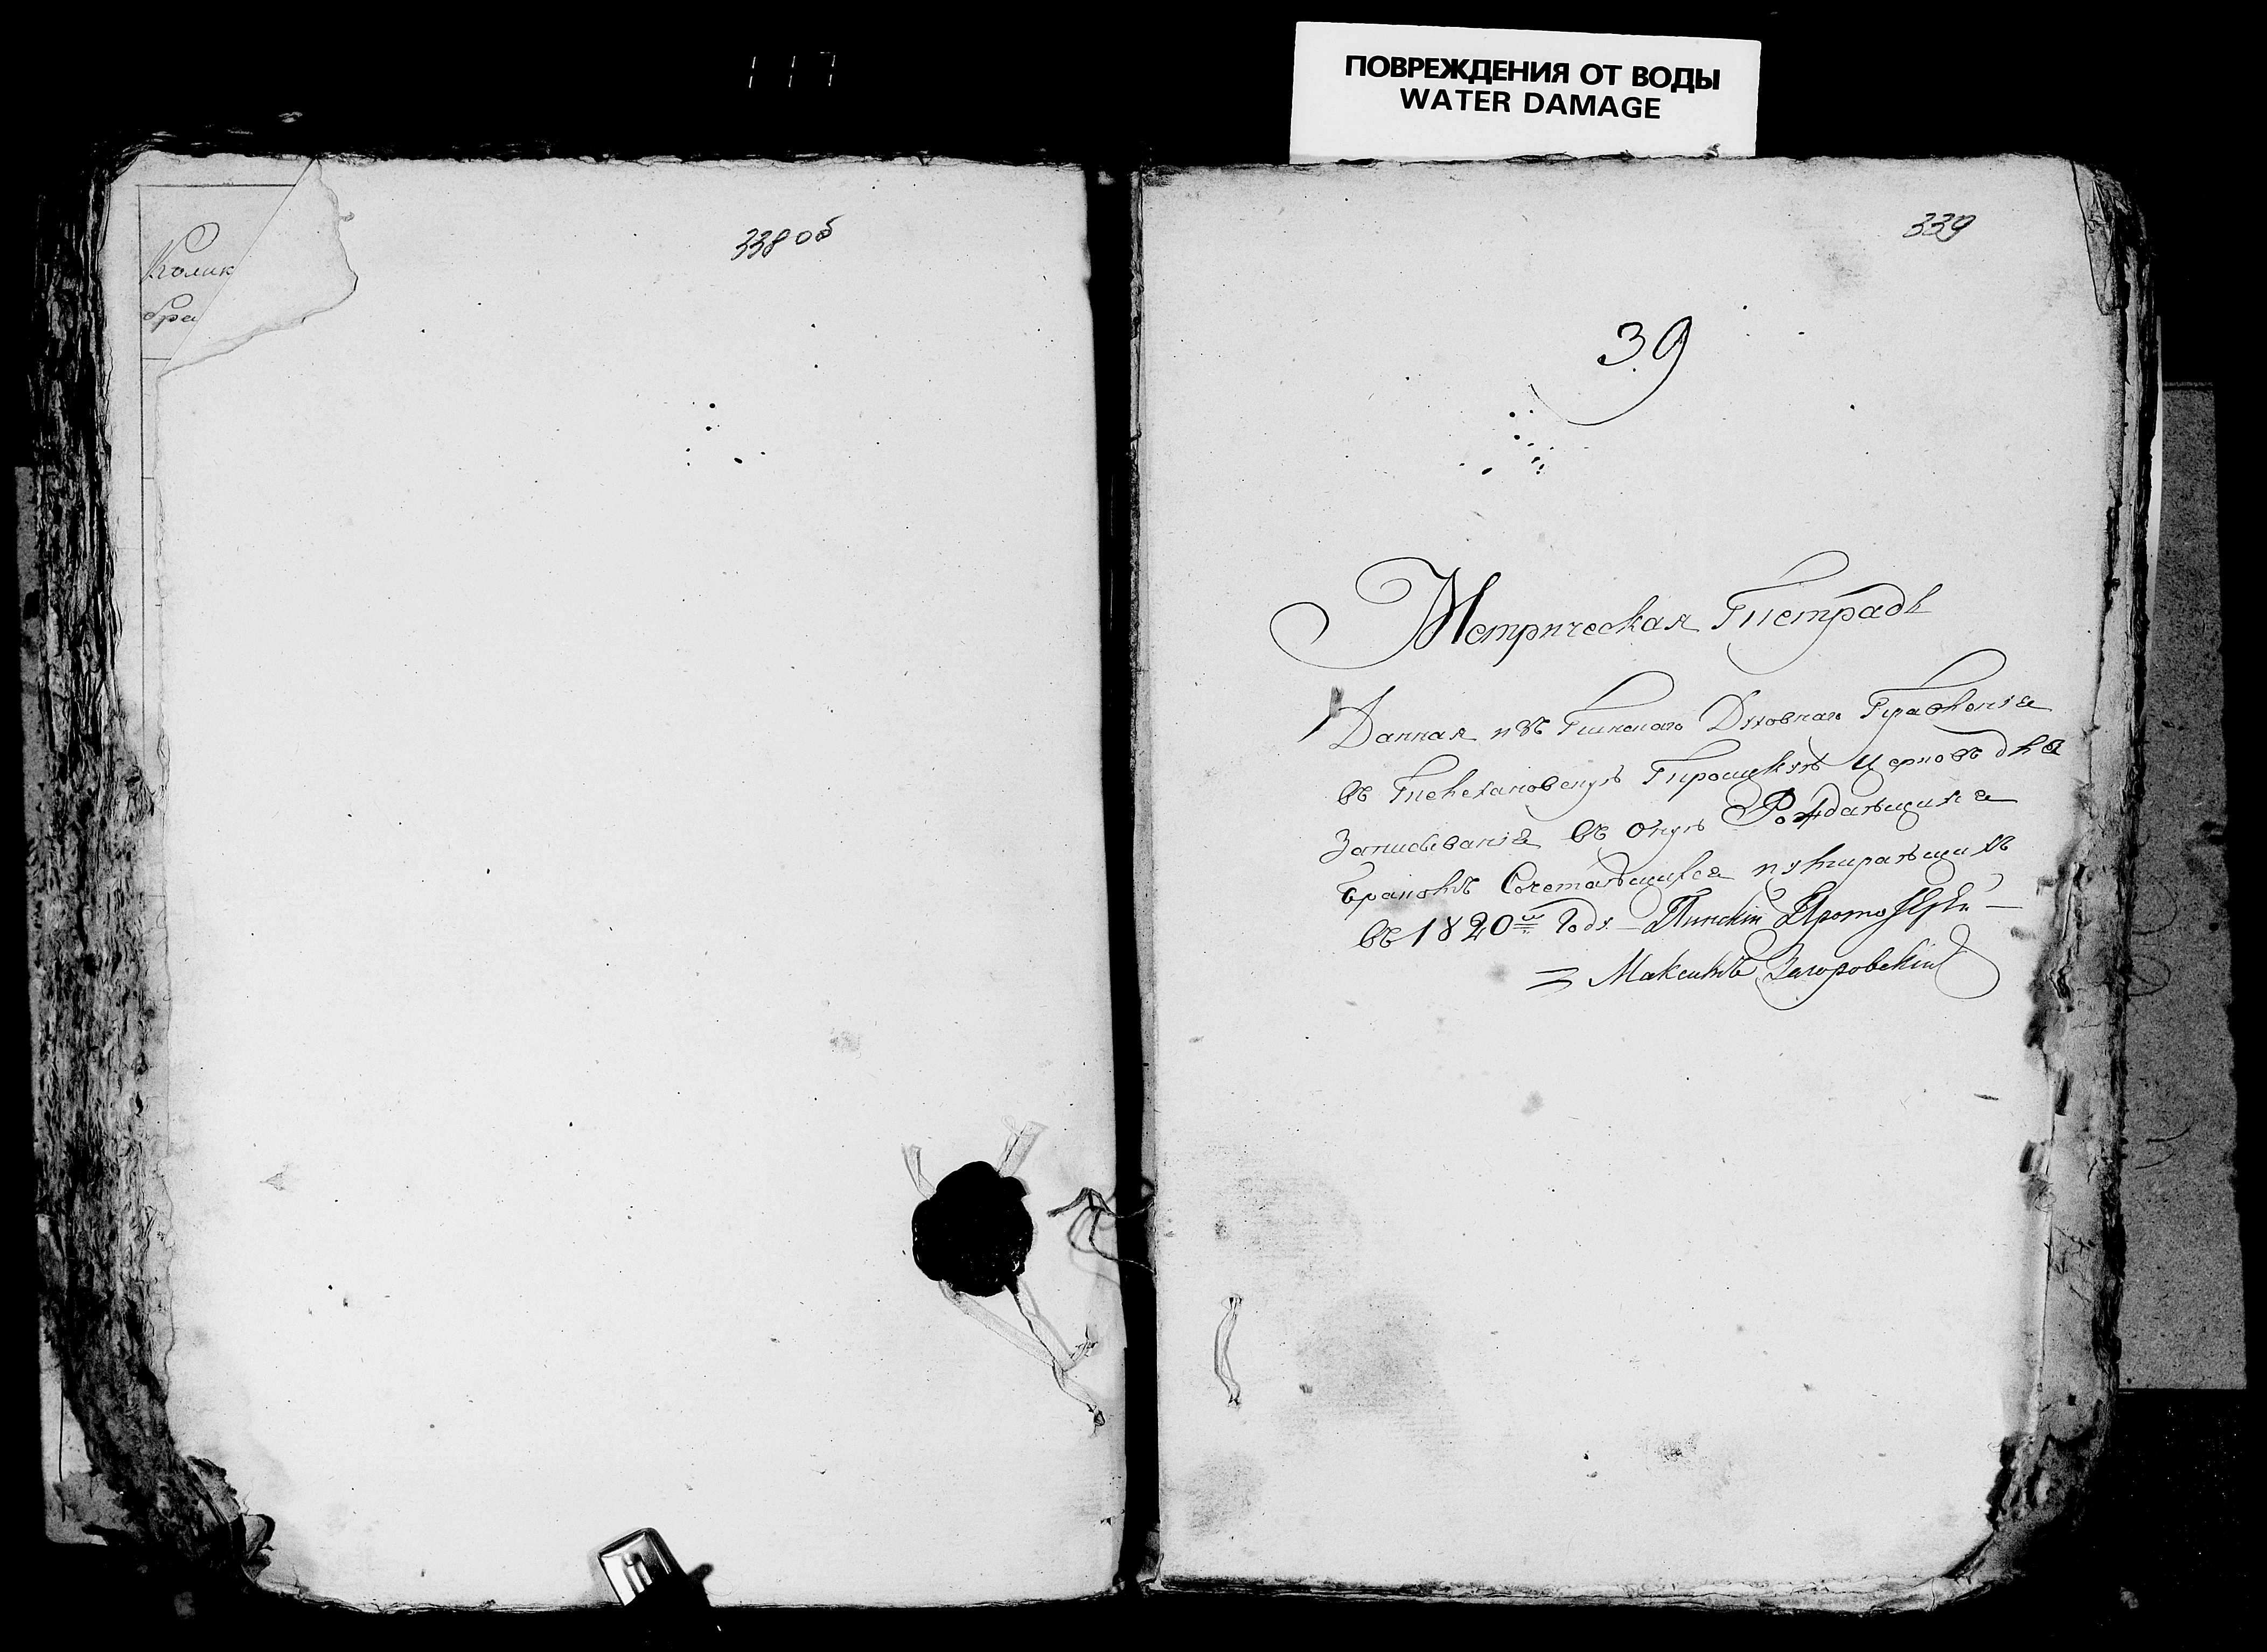 117
ПОВРЕЖДЕНИЯ ОТ ВОДЫ
WATER DAMAGE
Колик
бра
338 об
339
39
Метрическая Тетрадь
Данная изъ Пинскаго Духовнаго Правленія
въ Телехановскую Троицкую Церковь для
Записыванія въ оную Рождаю́щихся
Бракомъ Сочетавшихся и умирающихъ
въ 1820м Году. — Пинскій Протоіерей —
Максимъ Загоровскій